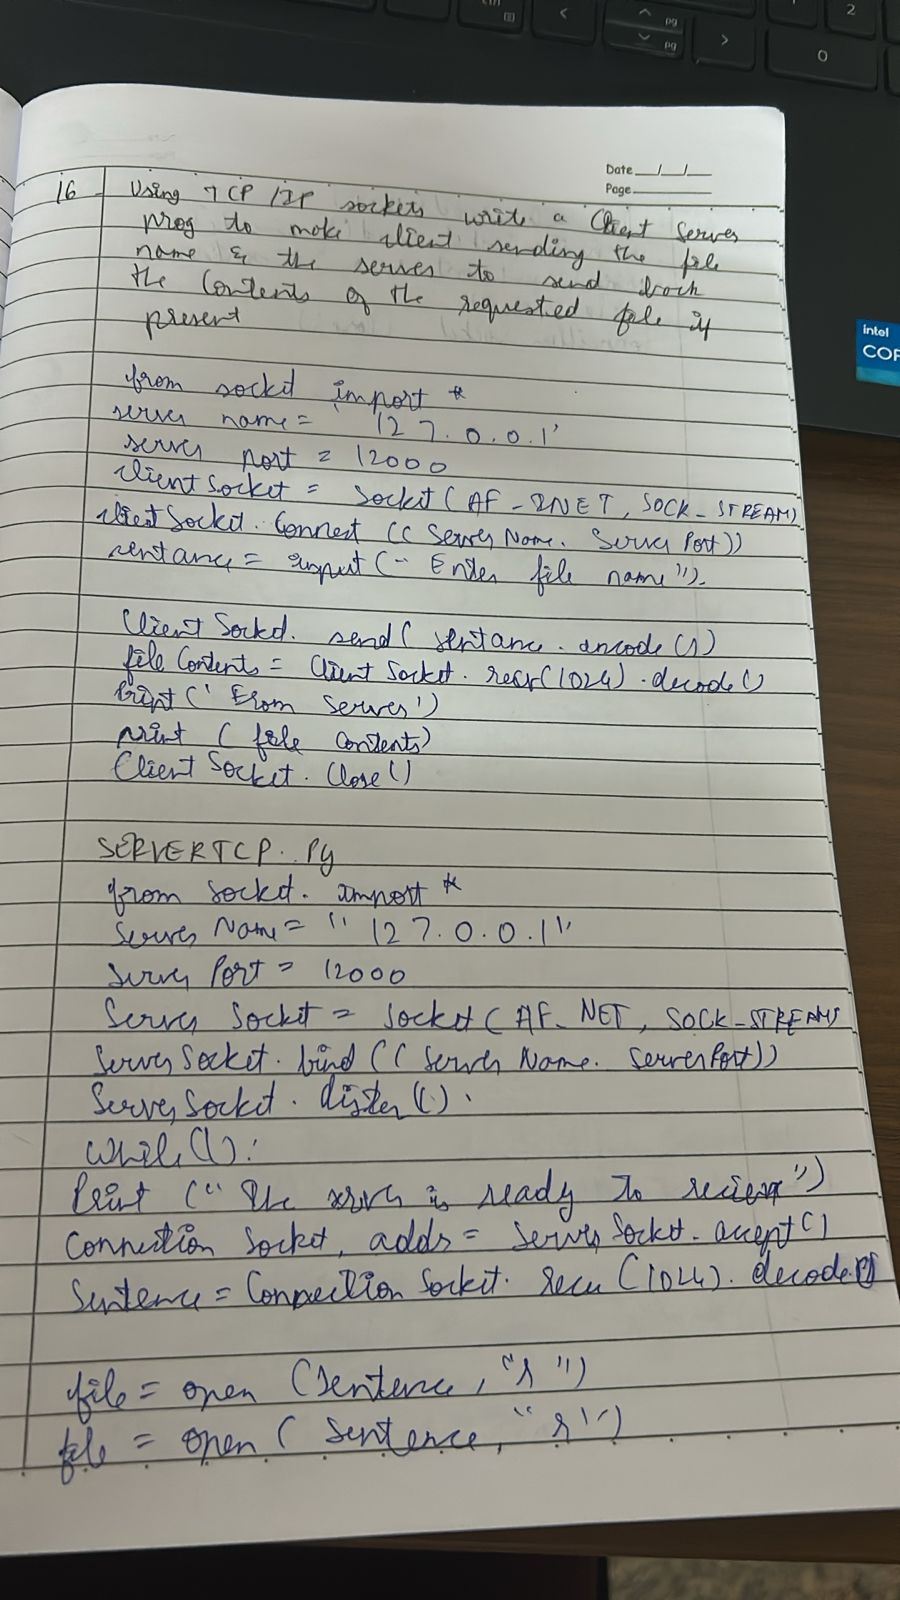 Date __/__/__
Page
16 Using TCP/IP sockets write a Client Server
prog to make client sending the file
name & the server to send back
the contents of the requested file if
present
from socket import *
server name = '127.0.0.1'
server port = 12000
client Socket = Socket (AF_INET, SOCK_STREAM)
client Socket. Connect (( Server Name. Server Port))
sentance = input (" Enter file name").
Client Socket. send( sentance. encode ())
file Contents = Client Socket. recv(1024).decode()
Print (' From Server')
print ( file contents)
Client Socket. Close()
SERVERTCP. Py
from Socket. import *
Server Name = "127.0.0.1"
Server Port = 12000
Server Socket = Socket (AF_NET, SOCK_STREAM)
Server Socket. bind (( Server Name. ServerPort))
Server Socket. listen ().
while (1):
Print (" The server is ready to recieve")
Connection Socket, adds = Server Socket. accept()
Sentence = Connection Socket. recv (1024). decode()
file = open (Sentence, "r")
file = open ( Sentence, "r")
intel
COR
pg
pg
2
0
<
>